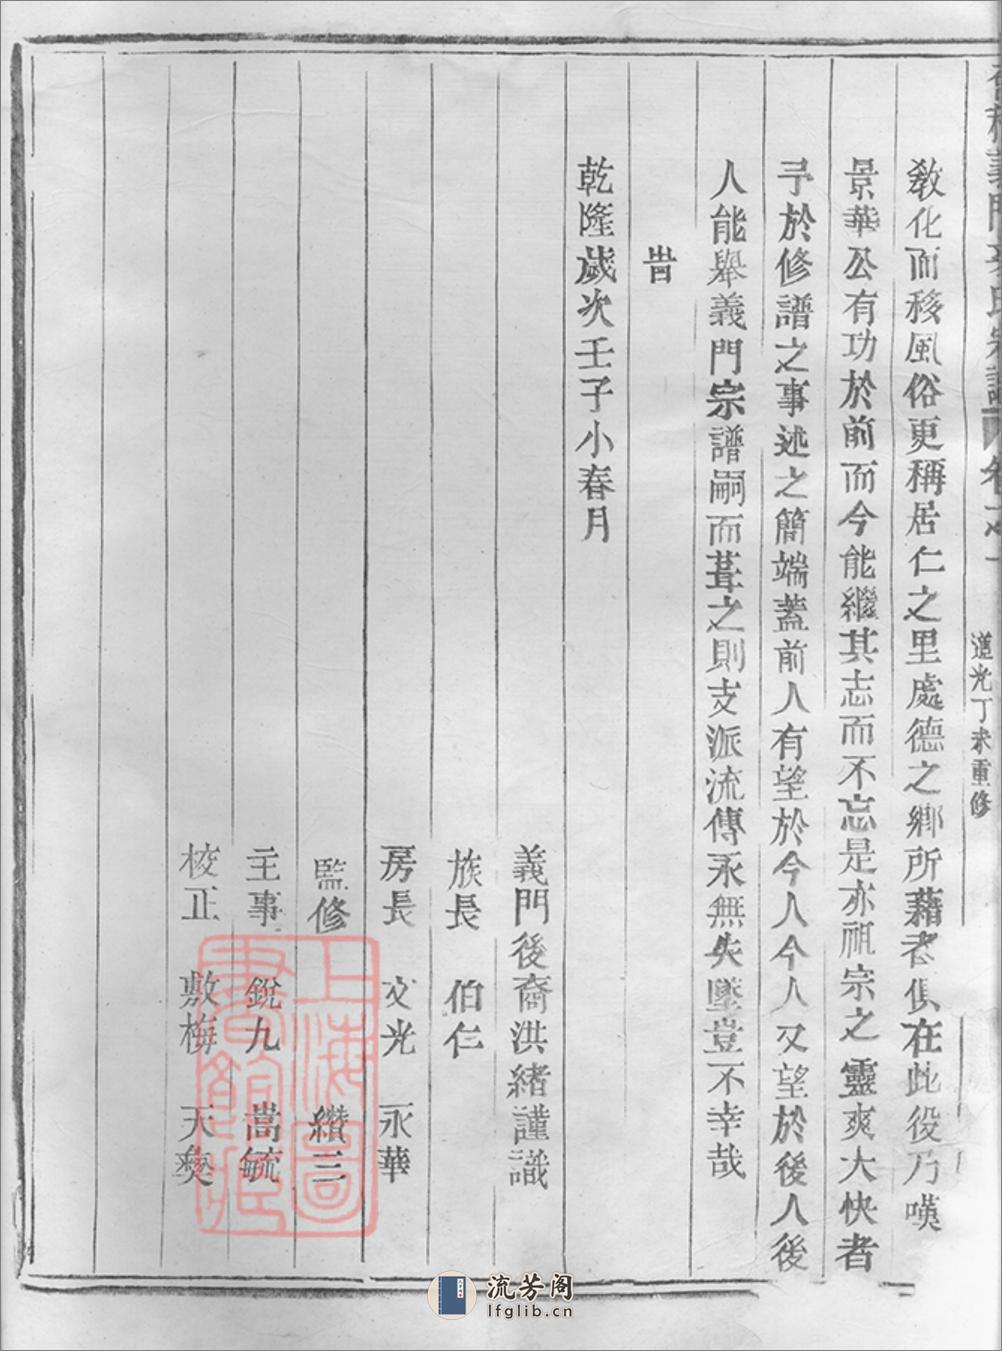 義門
氏宗譜
卷之一
道光丁未重修
教化而移風俗更稱居仁之里處德之鄉所藉者俱在此役乃嘆
景華公有功於前而今能繼其志而不忘是亦祖宗之靈爽大快者
予於修譜之事述之簡端蓋前人有望於今人今人又望於後人後
人能舉義門宗譜嗣而葺之則支派流傳永無失墜豈不幸哉
旹
乾隆歲次壬子小春月
義門後裔洪緒謹識
族長 伯仁
房長 文光 永華
監修 纘三
主事 銳九 嵩毓
校正 敷梅 天奬
上海圖書館藏
流芳阁
lfglib.cn